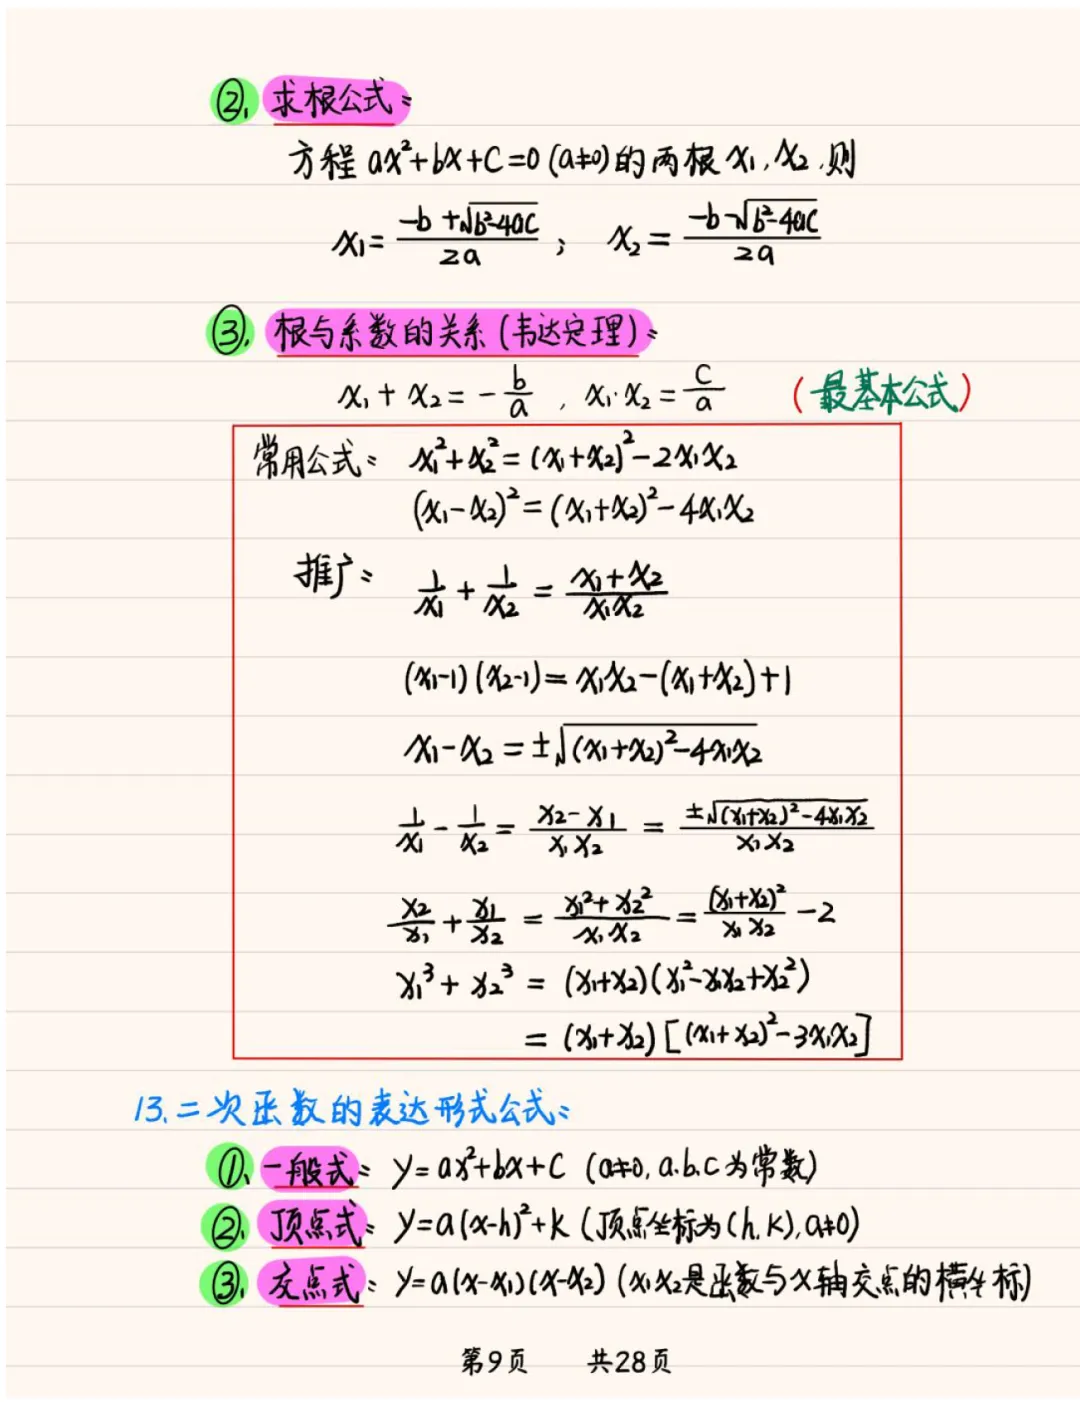 ②. 求根公式:
方程 ax²+bx+c=0 (a≠0) 的两根 x₁, x₂, 则
x₁ = (-b+√(b²-4ac))/(2a) ; x₂ = (-b-√(b²-4ac))/(2a)
③. 根与系数的关系(韦达定理):
x₁ + x₂ = -b/a , x₁·x₂ = c/a (最基本公式)
常用公式: x₁²+x₂² = (x₁+x₂)²-2x₁x₂
(x₁-x₂)² = (x₁+x₂)²-4x₁x₂
推广: 1/x₁ + 1/x₂ = (x₁+x₂)/(x₁x₂)
(x₁-1)(x₂-1) = x₁x₂-(x₁+x₂)+1
x₁-x₂ = ±√((x₁+x₂)²-4x₁x₂)
1/x₁ - 1/x₂ = (x₂-x₁)/(x₁x₂) = ±√((x₁+x₂)²-4x₁x₂)/(x₁x₂)
x₂/x₁ + x₁/x₂ = (x₁²+x₂²)/(x₁x₂) = (x₁+x₂)²/(x₁x₂) -2
x₁³ + x₂³ = (x₁+x₂)(x₁²-x₁x₂+x₂²)
= (x₁+x₂)[(x₁+x₂)²-3x₁x₂]
13. 二次函数的表达形式公式:
①. 一般式: y=ax²+bx+c (a≠0, a.b.c为常数)
②. 顶点式: y=a(x-h)²+k (顶点坐标为(h,k), a≠0)
③. 交点式: y=a(x-x₁)(x-x₂) (x₁x₂是函数与x轴交点的横坐标)
第9页 共28页